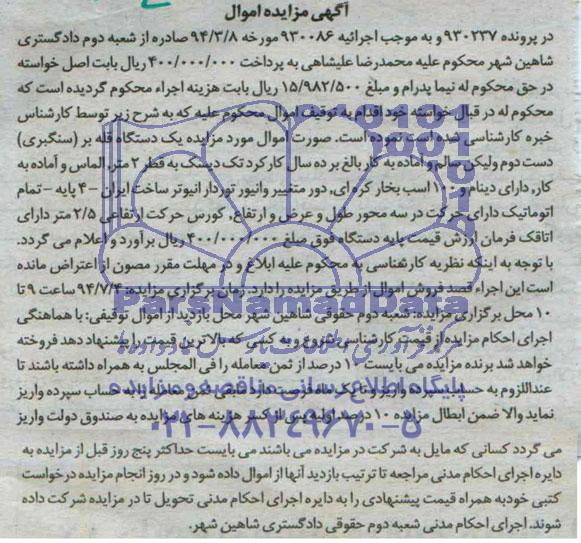 آگهی مزایده اموال
در پرونده ۹۳۰۲۳۷ و به موجب اجرائیه ۹۳۰۰۸۶ مورخه ۹۴/۳/۸ صادره از شعبه دوم دادگستری
شاهین شهر محکوم علیه محمدرضا علیشاهی به پرداخت ۴۰۰/۰۰۰/۰۰۰ ریال بابت اصل خواسته
در حق محکوم له نیما پدرام و مبلغ ۱۵/۹۸۲/۵۰۰ ریال بابت هزینه اجراء محکوم گردیده است که
محکوم له در قبال خواسته خود اقدام به توقیف اموال محکوم علیه که به شرح زیر توسط کارشناس
خبره کارشناسی شده است نموده است. صورت اموال مورد مزایده یک دستگاه قله بر (سنگبری)
دست دوم ولیکن سالم و آماده به کار بالغ بر ده سال کارکرد تک دیسک به قطر ۲ متر، الماس و آماده به
کار، دارای دینام و ۱۰۰ اسب بخار کره ای، دور متغییر وانیور توردار انیوتر ساخت ایران -۴ پایه - تمام
اتوماتیک دارای حرکت در سه محور طول و عرض و ارتفاع، کورس حرکت ارتفاعی ۲/۵ متر دارای
اتاقک فرمان ارزش قیمت پایه دستگاه فوق مبلغ ۴۰۰/۰۰۰/۰۰۰ ریال برآورد و اعلام می گردد.
با توجه به اینکه نظریه کارشناسی به محکوم علیه ابلاغ و در مهلت مقرر مصون از اعتراض مانده
است این اجراء قصد فروش اموال از طریق مزایده را دارد. زمان برگزاری مزایده: ۹۴/۷/۴ ساعت ۹ تا
۱۰ محل برگزاری مزایده: شعبه دوم حقوقی شاهین شهر محل بازدید از اموال توقیفی: با هماهنگی
اجرای احکام مزایده از قیمت کارشناسی شروع و به کسی که بالاترین قیمت را پیشنهاد دهد فروخته
خواهد شد برنده مزایده می بایست ۱۰ درصد از ثمن معامله را فی المجلس به همراه داشته باشند تا
عنداللزوم به حساب سپرده واریز و تا یک ماه فرصت دارد مابقی ثمن معامله را به حساب سپرده واریز
نماید والا ضمن ابطال مزایده ۱۰ درصد اولیه پس از کسر هزینه های مزایده به صندوق دولت واریز
می گردد کسانی که مایل به شرکت در مزایده می باشند می بایست حداکثر پنج روز قبل از مزایده به
دایره اجرای احکام مدنی مراجعه تا ترتیب بازدید آنها از اموال داده شود و در روز انجام مزایده درخواست
کتبی خود به همراه قیمت پیشنهادی را به دایره اجرای احکام مدنی تحویل تا در مزایده شرکت داده
شوند. اجرای احکام مدنی شعبه دوم حقوقی دادگستری شاهین شهر.
ParsNamadData
پایگاه اطلاع رسانی مناقصه و مزایده
۰۲۱-۸۸۳۴۹۶۷۰-۵